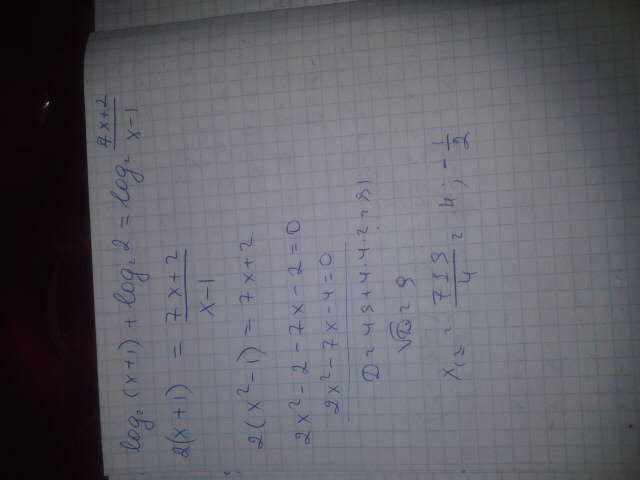 log₂ (x+1) + log₂ 2 = log₂ (7x+2)/(x-1)
2(x+1) = (7x+2)/(x-1)
2(x²-1) = 7x+2
2x²-2-7x-2=0
2x²-7x-4=0
D=49+4·4·2=81
√D=9
x₁,₂=(7±9)/4=4;-1/2